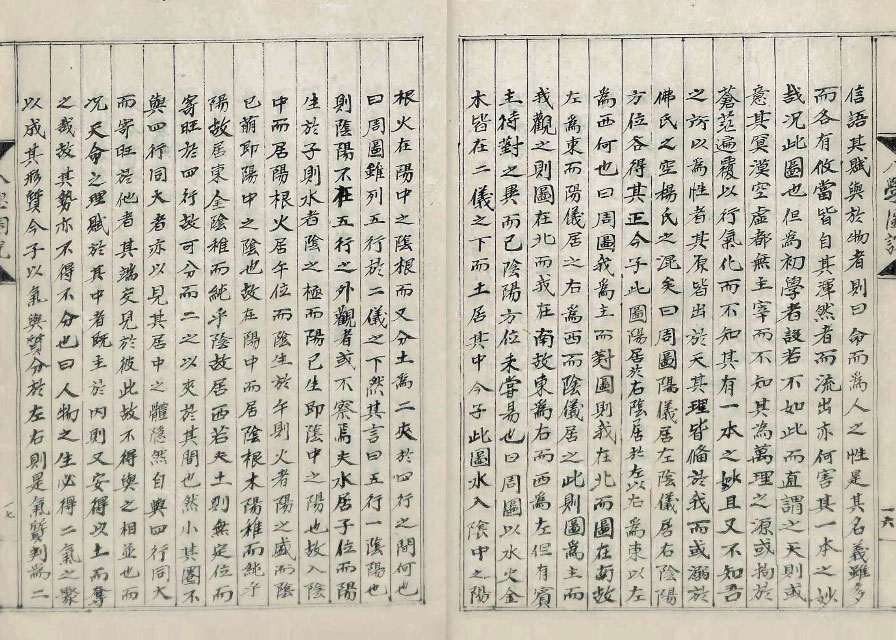 信語其賦與於物者則曰命而為人之性是其名義雖多
而各有攸當皆自其渾然者而流出亦何害其一本之妙
哉况此圖也但為初學者設若不如此而直謂之天則或
意其冥漠空虛都無主宰而不知其為萬理之源或拘於
蒼茫遍覆以行氣化而不知其有一本之妙且又不知吾
之所以為性者其原皆出於天其理皆俻於我而或溺於
佛氏之空楊氏之混矣曰周圖陽儀居左陰儀居右陰陽
方位各得其正今子此圖陽居於右陰居於左以右為東以左
為西何也曰周圖我為主而對圖則我在北而圖在南故
左為東而陽儀居之右為西而陰儀居之此則圖為主而
我觀之則圖在北而我在南故東為右而西為左但有賓
主待對之異而已陰陽方位未嘗易也曰周圖以水火金
木皆在二儀之下而土居其中今子此圖水入陰中之陽
根火在陽中之陰根而又分土為二夾於四行之間何也
曰周圖雖列五行於二儀之下然其言曰五行一陰陽也
則陰陽不在五行之外觀者或不察焉夫水居子位而陽
生於子則水者陰之極而陽已生即陰中之陽也故入陰
中而居陽根火居午位而陰生於午則火者陽之盛而陰
已萌即陽中之陰也故在陽中而居陰根木陽稚而純乎
陽故居東金陰稚而純乎陰故居西若夫土則無定位而
寄旺於四行故可分而二之以夾於其間也然小其圈不
與四行同大者亦以見其居中之體隱然自與四行同大
而寄旺於他者其端交見於彼此故不得與之相並也而
况天命之理賦於其中者既主於內則又安得以土而奪
之哉故其勢亦不得不分也曰人物之生必得二氣之聚
以成其形質今子以氣與質分於左右則是氣質判為二
一六
一七